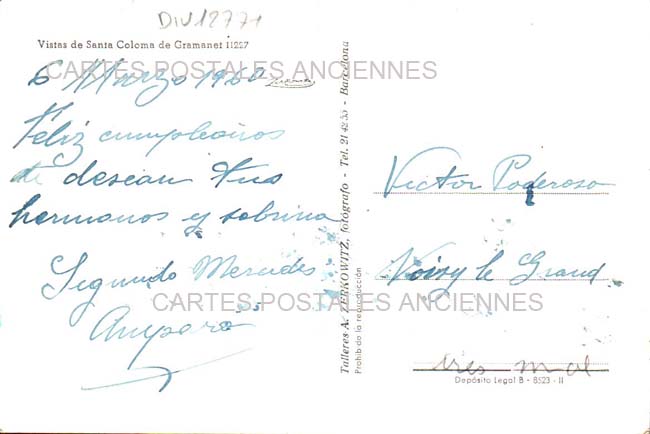 DIV12771
Vistas de Santa Coloma de Gramanet 11227
CARTES POSTALES ANCIENNES
6 Marzo 1960
Feliz cumpleaños
te desean tus
hermanos y sobrina
Segundo Mercedes
Amparo
Talleres A. ZERKOWITZ, fotógrafo - Tel. 21 42 55 - Barcelona
Prohib da la reproducción
Victor Poderoso
Noisy le Grand
CARTES POSTALES ANCIENNES
tres mal
Depósito Legal B - 8523 - II